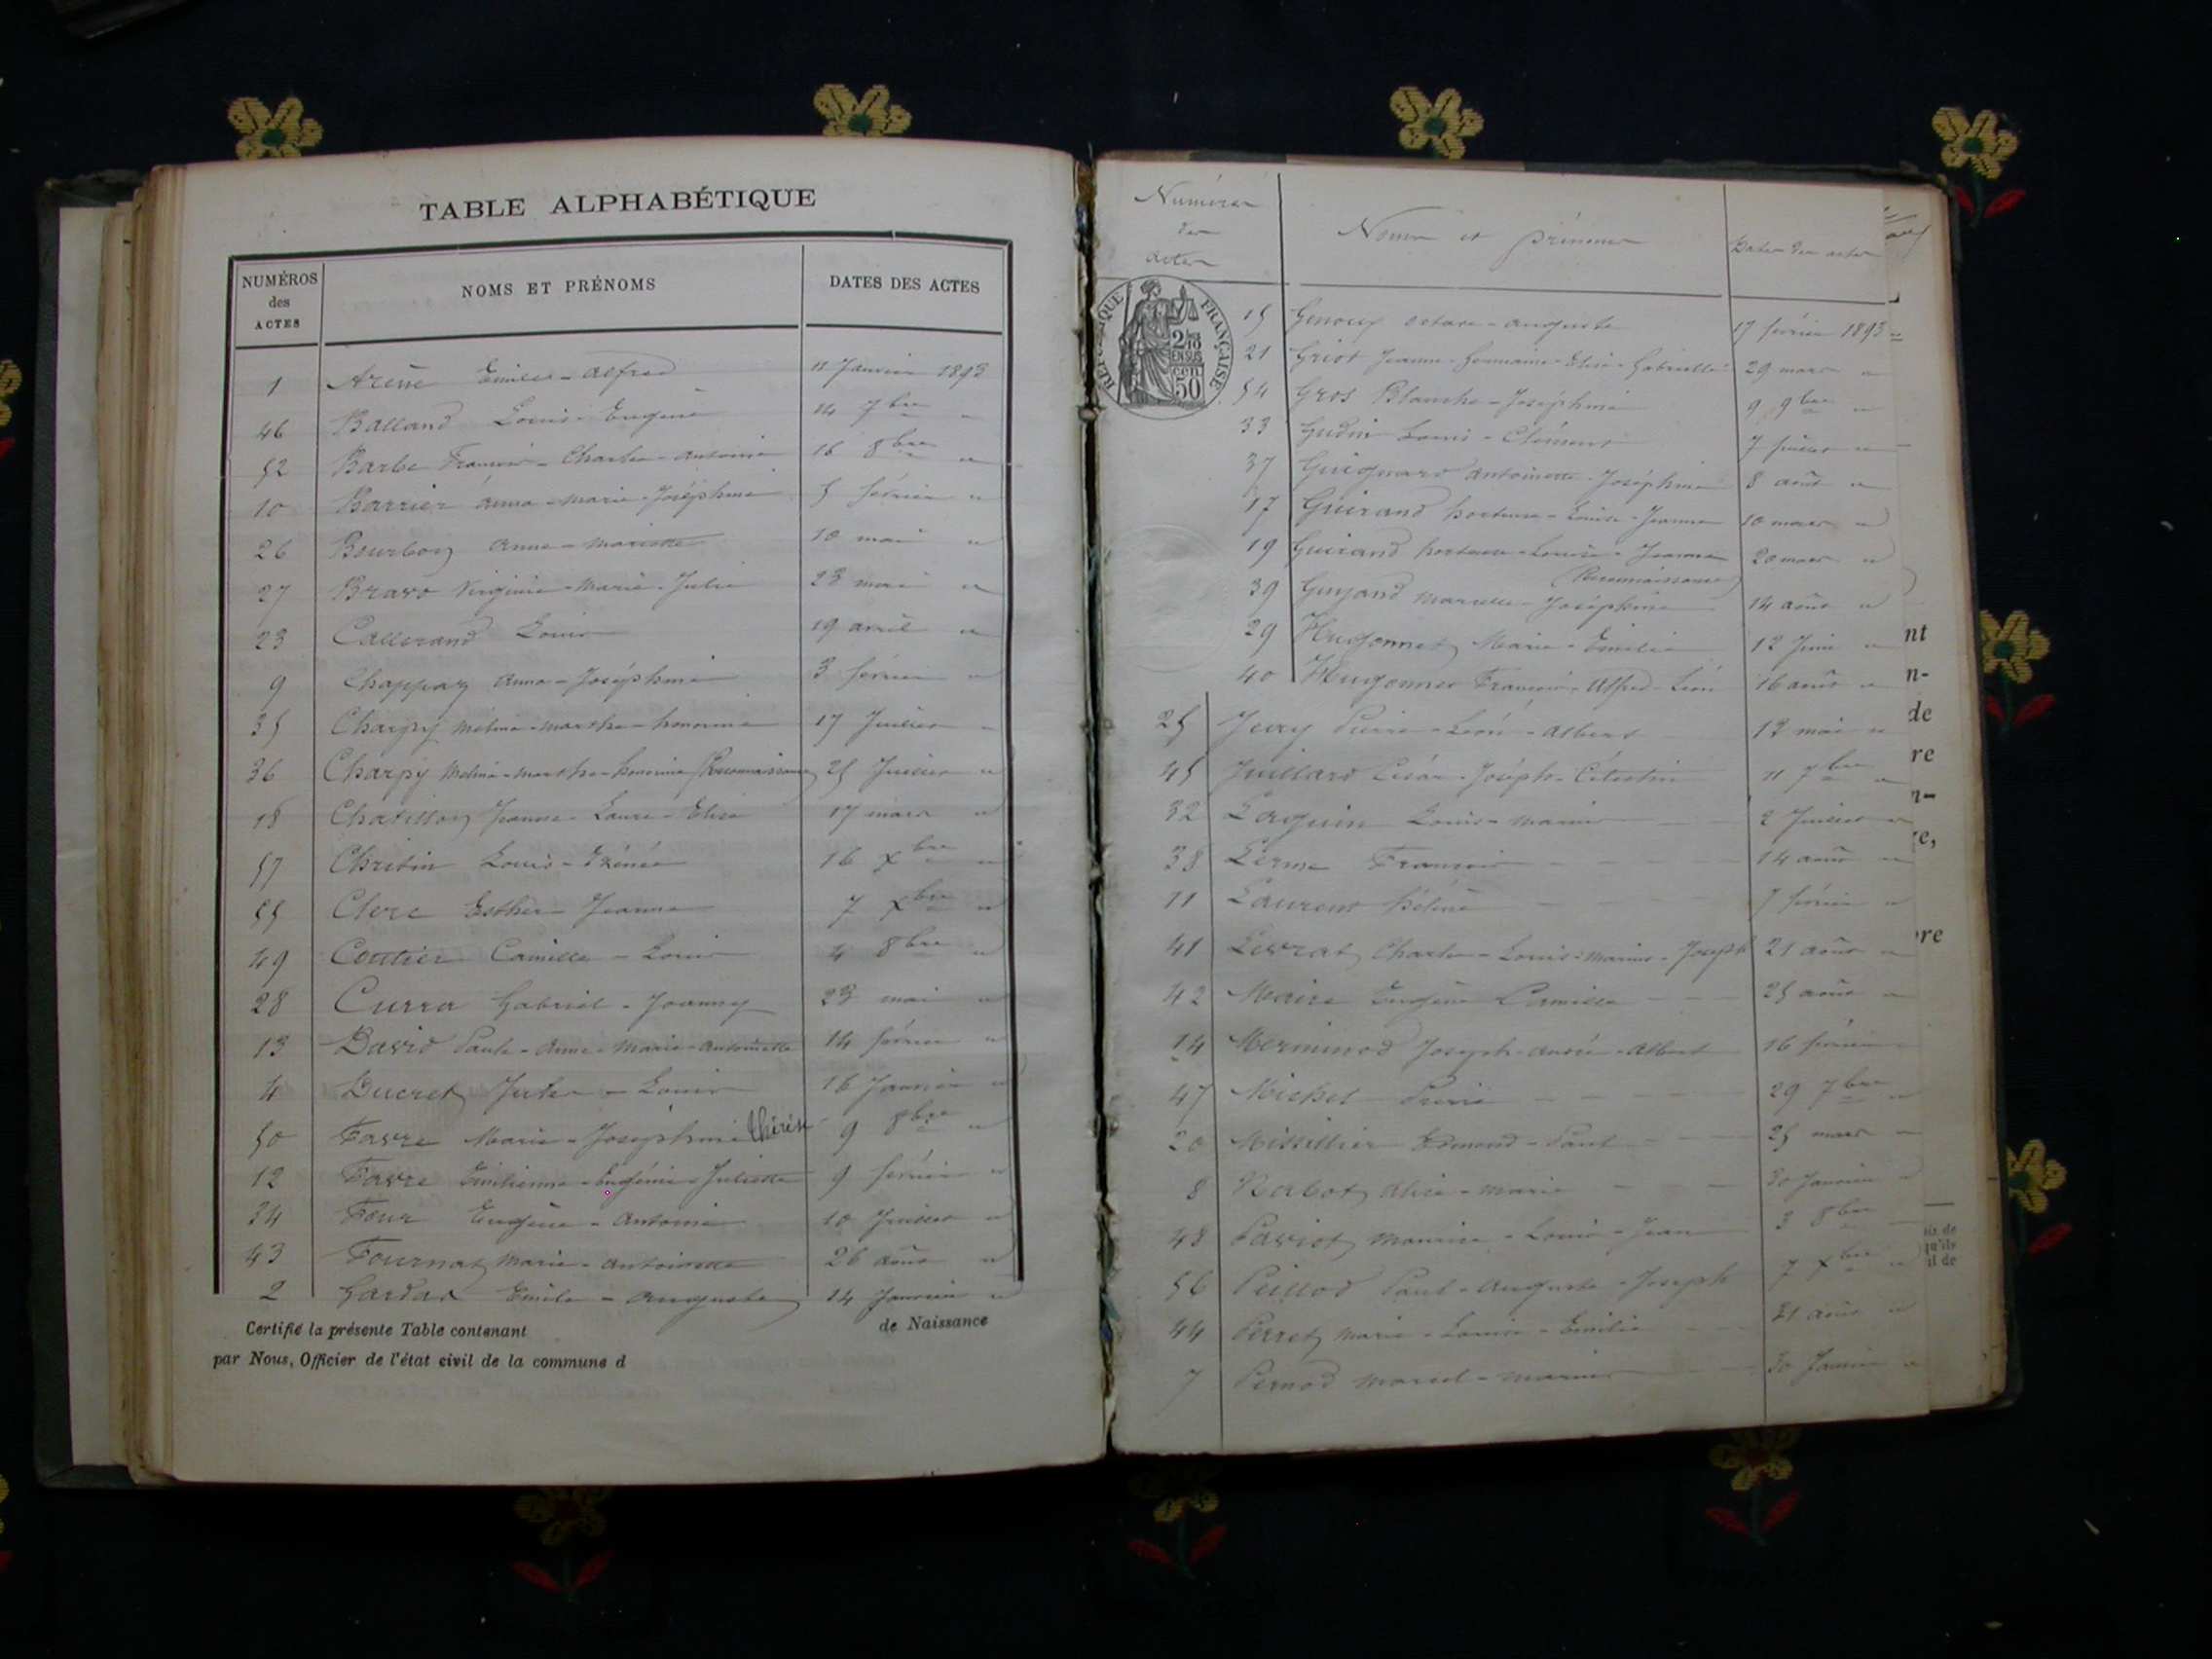 TABLE ALPHABÉTIQUE
NUMÉROS des ACTES NOMS ET PRÉNOMS DATES DES ACTES
1 Arène Emile - Alfred 11 Janvier 1893
46 Balland Louis - Eugène 14 7bre "
52 Barbe François - Charles - Antoine 16 8bre "
10 Barrier Anna - Marie - Joséphine 5 février "
26 Bourbon Anne - Mariette 10 mai "
27 Bravo Virginie - Marie - Julie 23 mai "
23 Callerand Louis 19 avril "
9 Chappaz Anna - Joséphine 3 février "
35 Charpy Mélina - Marthe - honorine 17 Juillet "
36 Charpy Mélina - Marthe - honorine (Reconnaissance) 25 Juillet "
18 Chatillon Jeanne - Laure - Elisa 17 mars "
57 Christin Louis - Irénée 16 Xbre "
55 Clerc Esther - Jeanne 7 Xbre "
49 Couttier Camille - Louis 4 8bre "
28 Curra Gabriel - Joanny 23 mai "
13 David Paule - Anne - Marie - Antoinette 14 février "
4 Ducret Jules - Louis 16 Janvier "
50 Favre Marie - Joséphine Thérèse 9 8bre "
12 Favre Emilienne - Eugénie - Juliette 9 février "
34 Four Eugène - Antoine 10 Juillet "
43 Fournat Marie - Antoinette 26 août "
2 Gardas Emile - Auguste 14 Janvier "
Certifié la présente Table contenant de Naissance
par Nous, Officier de l'état civil de la commune d
Numéros des actes Noms et prénoms Dates des actes
RÉPUBLIQUE FRANÇAISE
2/10 EN SUS 50 cen
15 Genoux Octave - Auguste 17 février 1893 "
21 Griot Jeanne - Germaine - Elise - Gabrielle 29 mars "
54 Gros Blanche - Joséphine 9 9bre "
33 Gudin Louis - Clément 7 juillet "
37 Guignard Antoinette - Joséphine 8 août "
17 Guirand hortense - Louise - Jeanne 10 mars "
19 Guirand hortense - Louise - Jeanne 20 mars "
(Reconnaissance)
39 Guyand Marcelle - Joséphine 14 août "
29 Hugonnet Marie - Emilie 12 Juin "
40 Hugonnet François - Alfred - Léon 16 août "
25 Jury Pierre - Léon - Albert 12 mai "
45 Juillard César - Joseph - Célestin 11 7bre "
32 Laguin Louis - Marius 2 Juillet "
38 Lerme François 14 août "
11 Laurent hélène 7 février "
41 Levrat Charles - Louis - Marius - Joseph 21 août "
42 Maire Eugène Camille 25 août "
14 Merminod Joseph - André - Albert 16 février "
47 Michel Pierre 29 7bre "
20 Missillier Edmond - Paul 25 mars "
8 Nabot Alice - Marie 30 Janvier "
48 Paviot Maurice - Louis - Jean 3 8bre "
56 Peillod Paul - Auguste - Joseph 7 Xbre "
44 Perret Marie - Louise - Emilie 31 août "
7 Pernod Marcel - Marius 30 Janvier "